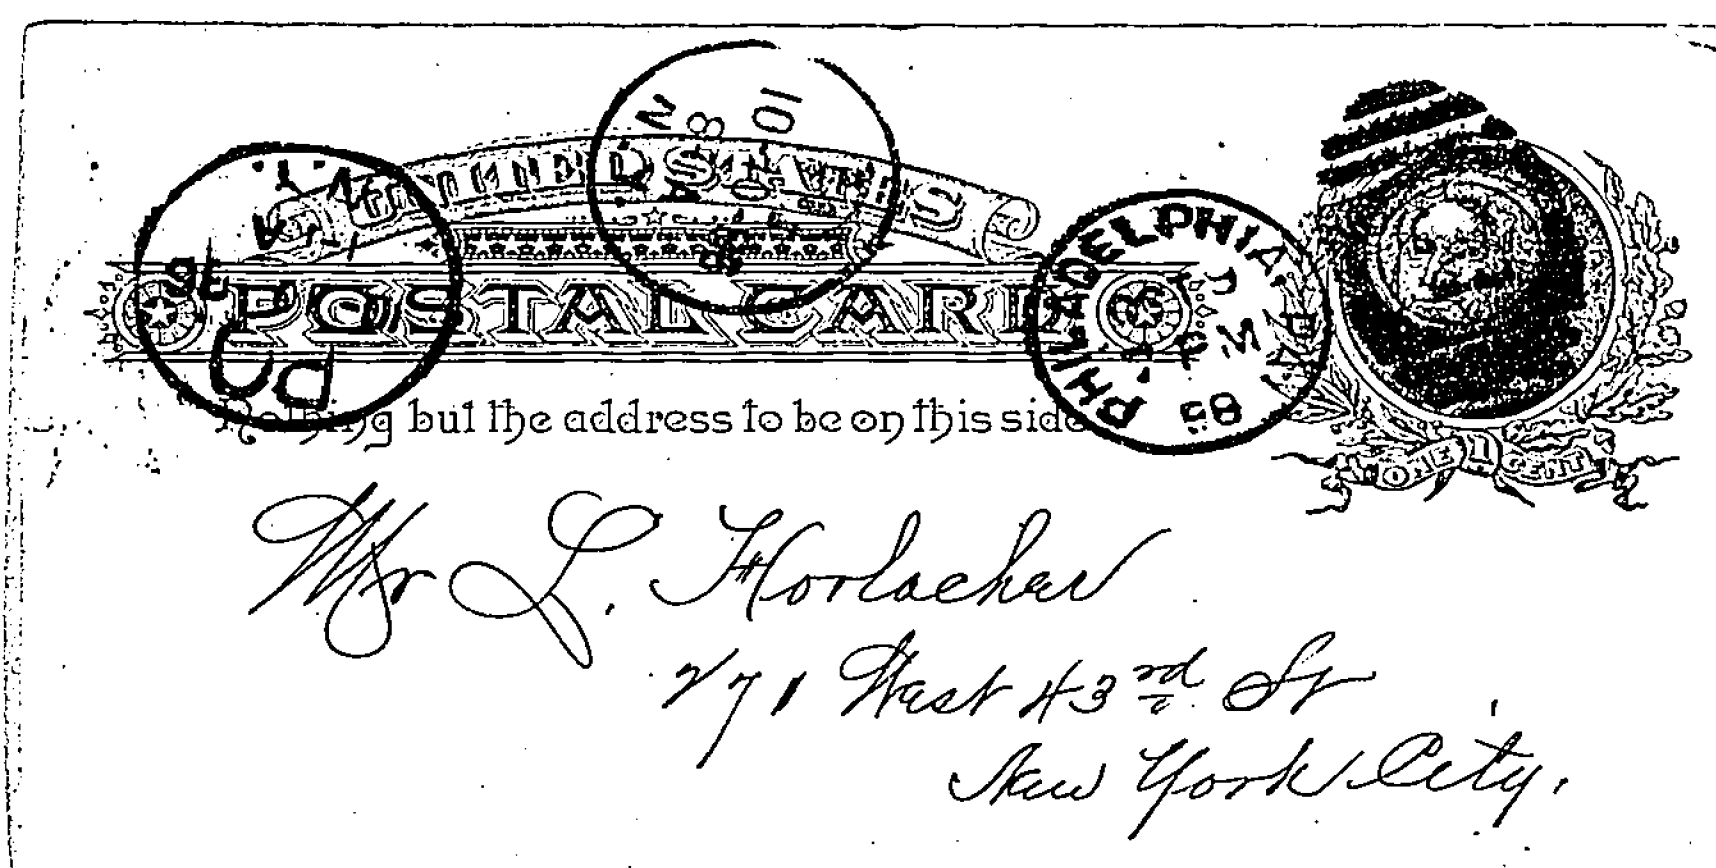 UNITED STATES
POSTAL CARD
Nothing but the address to be on this side
ONE 1 CENT
PHILADELPHIA PA
85
N 8 10
Mr L. Horlacher
271 West 43rd St
New York City.